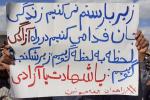 زیر بار ستم نمی کنیم زندگی
جان فدا می کنیم در راه آزادی
لحظه به لحظه گوییم زیر شکنجه
گوییم یا شهادت یا آزادی
زاهدان